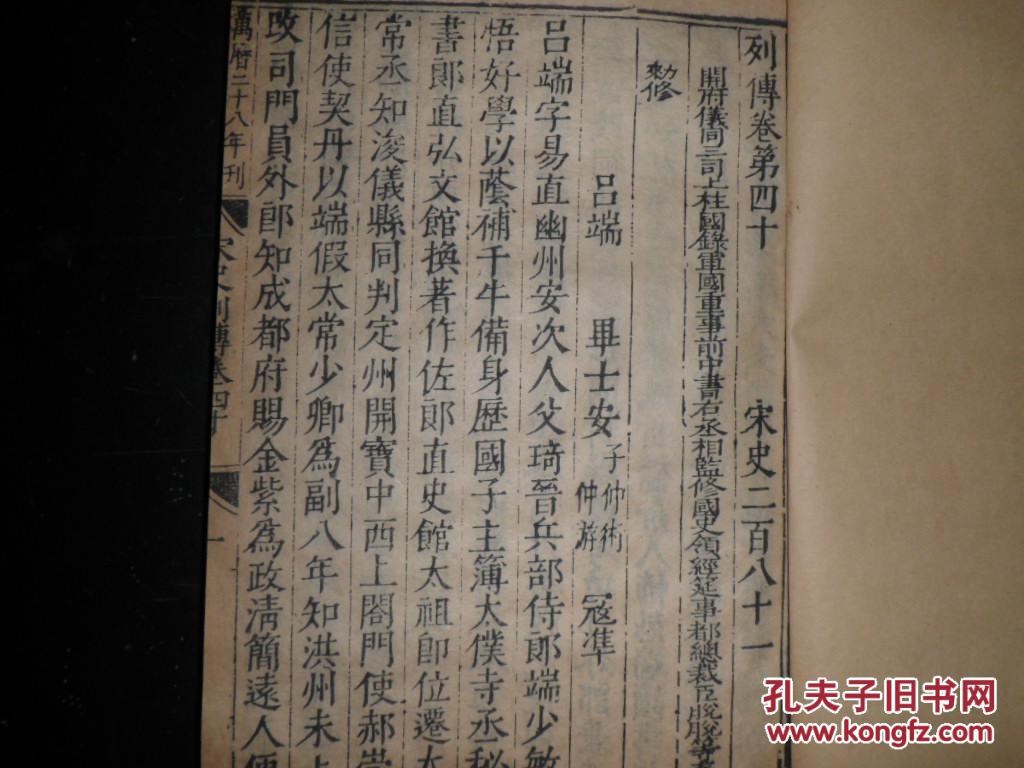 列傳卷第四十 宋史二百八十一
開府儀同三司上柱國錄軍國重事前中書右丞相監修國史領經筵事都總裁臣脫脫等
勅修
呂端 畢士安 子仲衍 仲游 寇準
呂端字易直幽州安次人父琦晉兵部侍郎端少敏
悟好學以蔭補千牛備身歷國子主簿太僕寺丞秘
書郎直弘文館換著作佐郎直史館太祖即位遷太
常丞知浚儀縣同判定州開寶中西上閤門使郝崇
信使契丹以端假太常少卿為副八年知洪州未上
改司門員外郎知成都府賜金紫為政清簡遠人便
萬曆二十八年刊 宋史列傳卷四十 一
孔夫子旧书网
www.kongfz.com